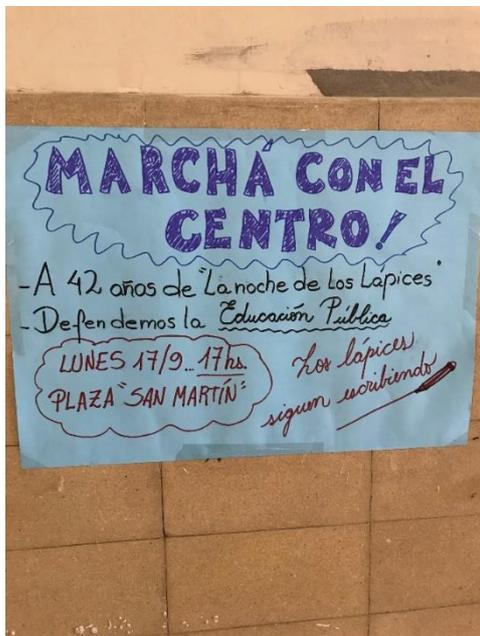 MARCHÁ CON EL
CENTRO!
- A 42 años de "La noche de Los Lápices"
- Defendemos la Educación Pública
LUNES 17/9... 17hs.
PLAZA "SAN MARTÍN"
Los lápices
siguen escribiendo